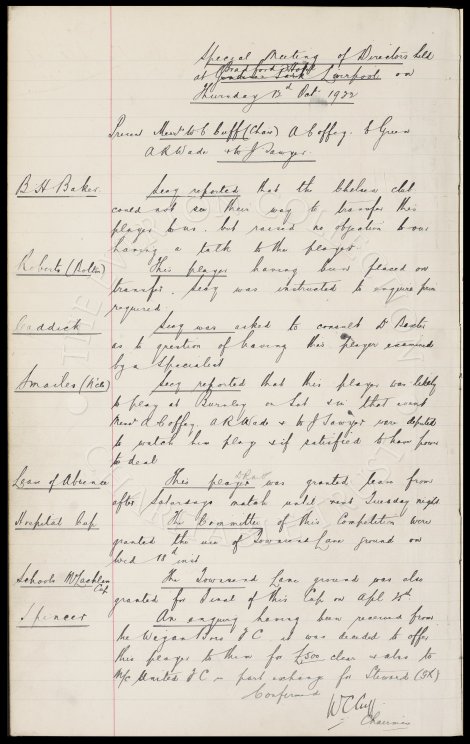 Special Meeting of Directors held
Bradford Hotel
at Goodison Park Liverpool on
Thursday 12th Oct 1922
Present Messrs W C Cuff (Chair) A Coffey. E Green
A R Wade & W J Sawyer.
B H Baker.
Secy reported that the Chelsea club
could not see their way to transfer this
player to us. but raised no objection to our
having a talk to the player.
Roberts (Bolton)
This player having been placed on
transfer. Secy was instructed to enquire price
required.
Caddick
Secy was asked to consult Dr Baxter
as to question of having this player examined
by a Specialist
Smailes (
Secy reported that this player was likely
to play at Burnley on Sat in that event
Messrs A Coffey A R Wade & W J Sawyer were deputed
to watch him play & if satisfied to have power
to deal
Leave of Absence
This player was granted leave from
after Saturdays match until next Tuesday night
Hospital Cup
The Committee of this Competition were
granted the use of Townsend Lane ground on
Wed 18th inst
Schools McLachlan
Cup
The Townsend Lane ground was also
granted for Final of this Cup on Apl
Spencer
An enquiry having been received from
the Wigan Boro F C it was decided to offer
this player to them for £500 clear & also to
M/c United F C in part exchange for Steward (GK)
Confirmed
W C Cuff
Chairman